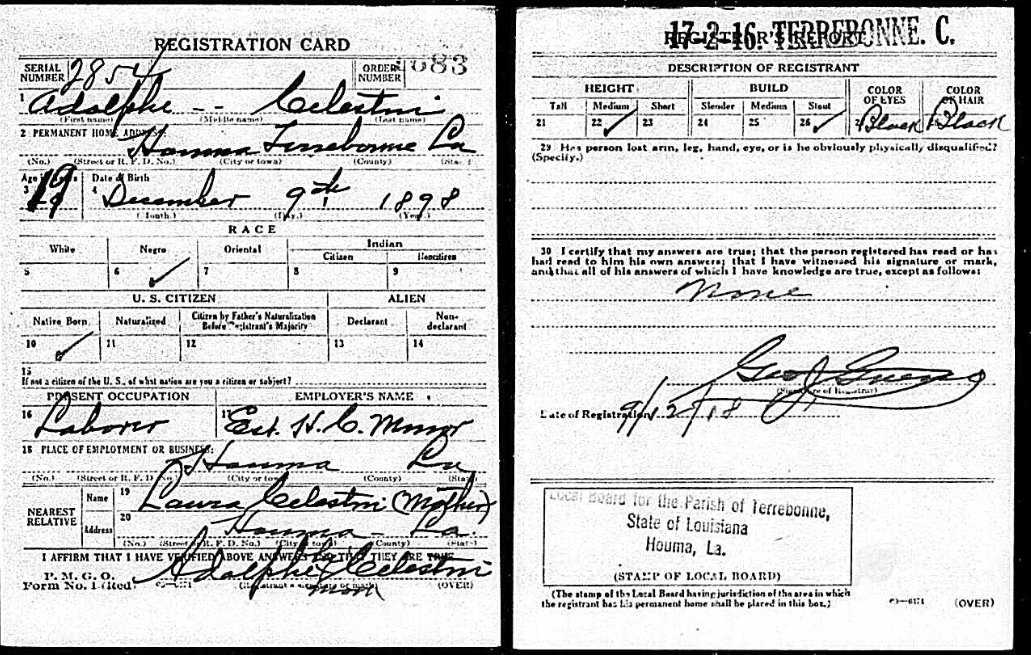 REGISTRATION CARD
SERIAL NUMBER 2854 ORDER NUMBER 683
1 Adolphe -- Celestin
(First name) (Middle name) (Last name)
2 PERMANENT HOME ADDRESS:
Houma Terrebonne La
(No.) (Street or R. F. D. No.) (City or town) (County) (State)
Age in Years Date of Birth
3 19 4 December 9th 1898
(Month.) (Day.) (Year.)
RACE
White Negro Oriental Indian
Citizen Noncitizen
5 6 ✓ 7 8 9
U. S. CITIZEN ALIEN
Native Born Naturalized Citizen by Father's Naturalization Before Registrant's Majority Declarant Non-declarant
10 ✓ 11 12 13 14
15
If not a citizen of the U. S., of what nation are you a citizen or subject?
PRESENT OCCUPATION EMPLOYER'S NAME
16 Laborer 17 Est. H. C. Minor
18 PLACE OF EMPLOYMENT OR BUSINESS:
Houma La
(No.) (Street or R. F. D. No.) (City or town) (County) (State)
NEAREST RELATIVE Name 19 Laura Celestin (Mother)
Address 20 Houma La.
(No.) (Street or R. F. D. No.) (City or town) (County) (State)
I AFFIRM THAT I HAVE VERIFIED ABOVE ANSWERS AND THAT THEY ARE TRUE
P. M. G. O.
Form No. 1 (Red) Adolphe Celestin
(Registrant's signature or mark) (OVER)
17-2-16. TERREBONNE. C.
REGISTRAR'S REPORT
DESCRIPTION OF REGISTRANT
HEIGHT BUILD COLOR OF EYES COLOR OF HAIR
Tall Medium Short Slender Medium Stout
21 22 ✓ 23 24 25 26 ✓ Black Black
29 Has person lost arm, leg, hand, eye, or is he obviously physically disqualified?
(Specify.)
30 I certify that my answers are true; that the person registered has read or has
had read to him his own answers; that I have witnessed his signature or mark,
and that all of his answers of which I have knowledge are true, except as follows:
None
Geo J
(Signature of Registrar)
Date of Registration 9/12/18
Local Board for the Parish of Terrebonne,
State of Louisiana
Houma, La.
(STAMP OF LOCAL BOARD)
(The stamp of the Local Board having jurisdiction of the area in which
the registrant has his permanent home shall be placed in this box.)
03—6171 (OVER)